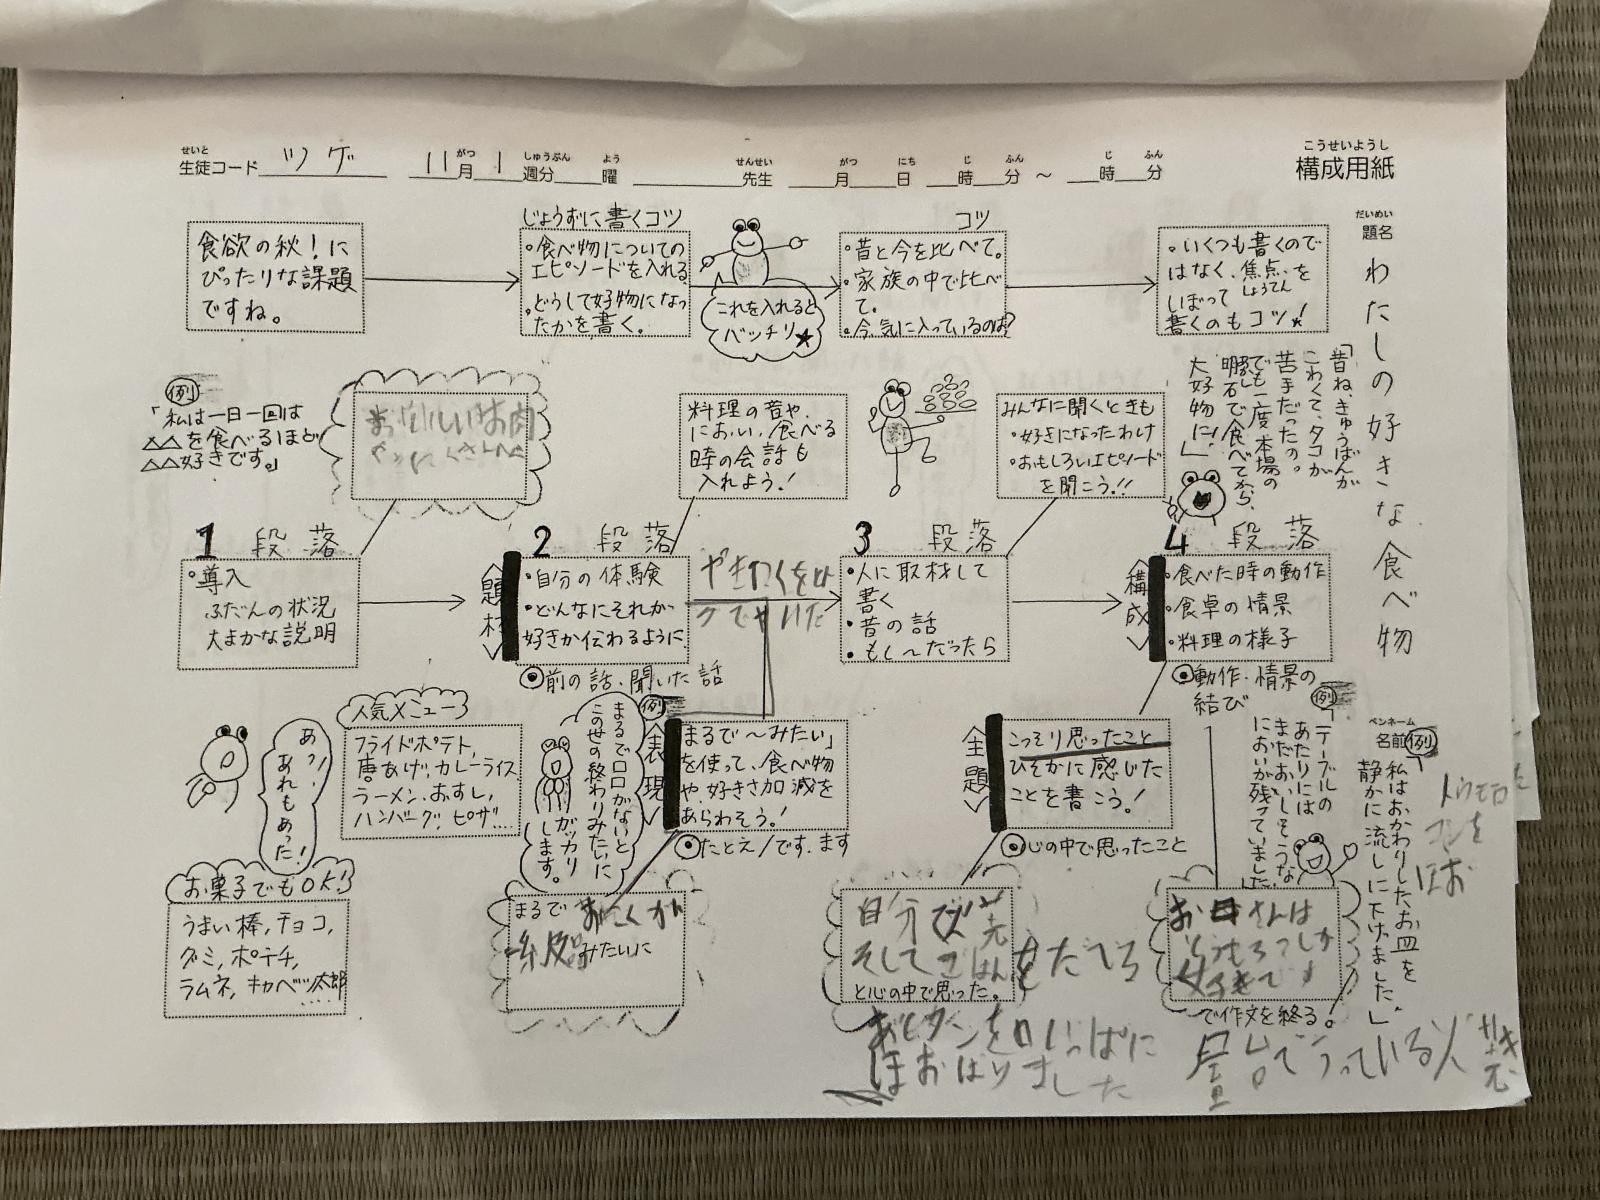 こうせいようし
構成用紙
せいと
生徒コード ツゲ
11月 1週分 曜
がつ しゅうぶん よう
せんせい
先生
がつ にち じ ふん じ ふん
月 日 時 分 ～ 時 分
だいめい
題名
わたしの好きな食べ物
食欲の秋！に
ぴったりな課題
ですね。
じょうずに書くコツ
・食べ物についての
エピソードを入れる
・どうして好物になっ
たかを書く。
これを入れると
バッチリ★
コツ
・昔と今を比べて。
・家族の中で比べ
て。
・今、気に入っているのは？
・いくつも書くので
はなく、焦点を
しょうてん
しぼって
書くのもコツ！
例
「私は一日一回は
△△を食べるほど
△△好きです。」
おいしいお肉
料理の音や、
におい、食べる
時の会話も
入れよう！
みんなに聞くときも
・好きになったわけ
・おもしろいエピソード
を聞こう！！
「昔ね、きゅうばんが
こわくて、タコが
苦手だったの。
でも一度本場の
明石で食べてから、
大好物に！」
1 段落
・導入
ふだんの状況
大まかな説明
〈題材〉
2 段落
・自分の体験
・どんなにそれが
好きか伝わるように
◎前の話、聞いた話
やきにくを
3 段落
・人に取材して
書く
・昔の話
・もし～だったら
〈構成〉
4 段落
・食べた時の動作
・食卓の情景
・料理の様子
◎動作・情景の
結び
例
「テーブルの
あたりには
まだおいしそうな
においが残っていました」
人気メニュー
フライドポテト、
唐あげ、カレーライス
ラーメン、おすし、
ハンバーグ、ピザ....
あっ！
あれもあった！
お菓子でもOK！
うまい棒、チョコ、
グミ、ポテチ、
ラムネ、キャベツ太郎
.....
例
まるで〇〇がないと
この世の終わりみたいに
ガッカリ
します。
〈表現〉
「まるで～みたい」
を使って、食べ物
や、好きさ加減を
あらわそう！
◎たとえ/です、ます
まるで おにくが
みたいに
〈主題〉
こっそり思ったこと
ひそかに感じた
ことを書こう！
◎心の中で思ったこと
自分で
そしてごはんを
と心の中で思った。
を口いっぱいに
ほおばりました
お母さんは
とうもろこしが
好きです
で作文を終る！
屋台でうっている
ペンネーム
名前
例
「私はおかわりしたお皿を
静かに流しに下げました。」
トウモロ
コシを
ほお